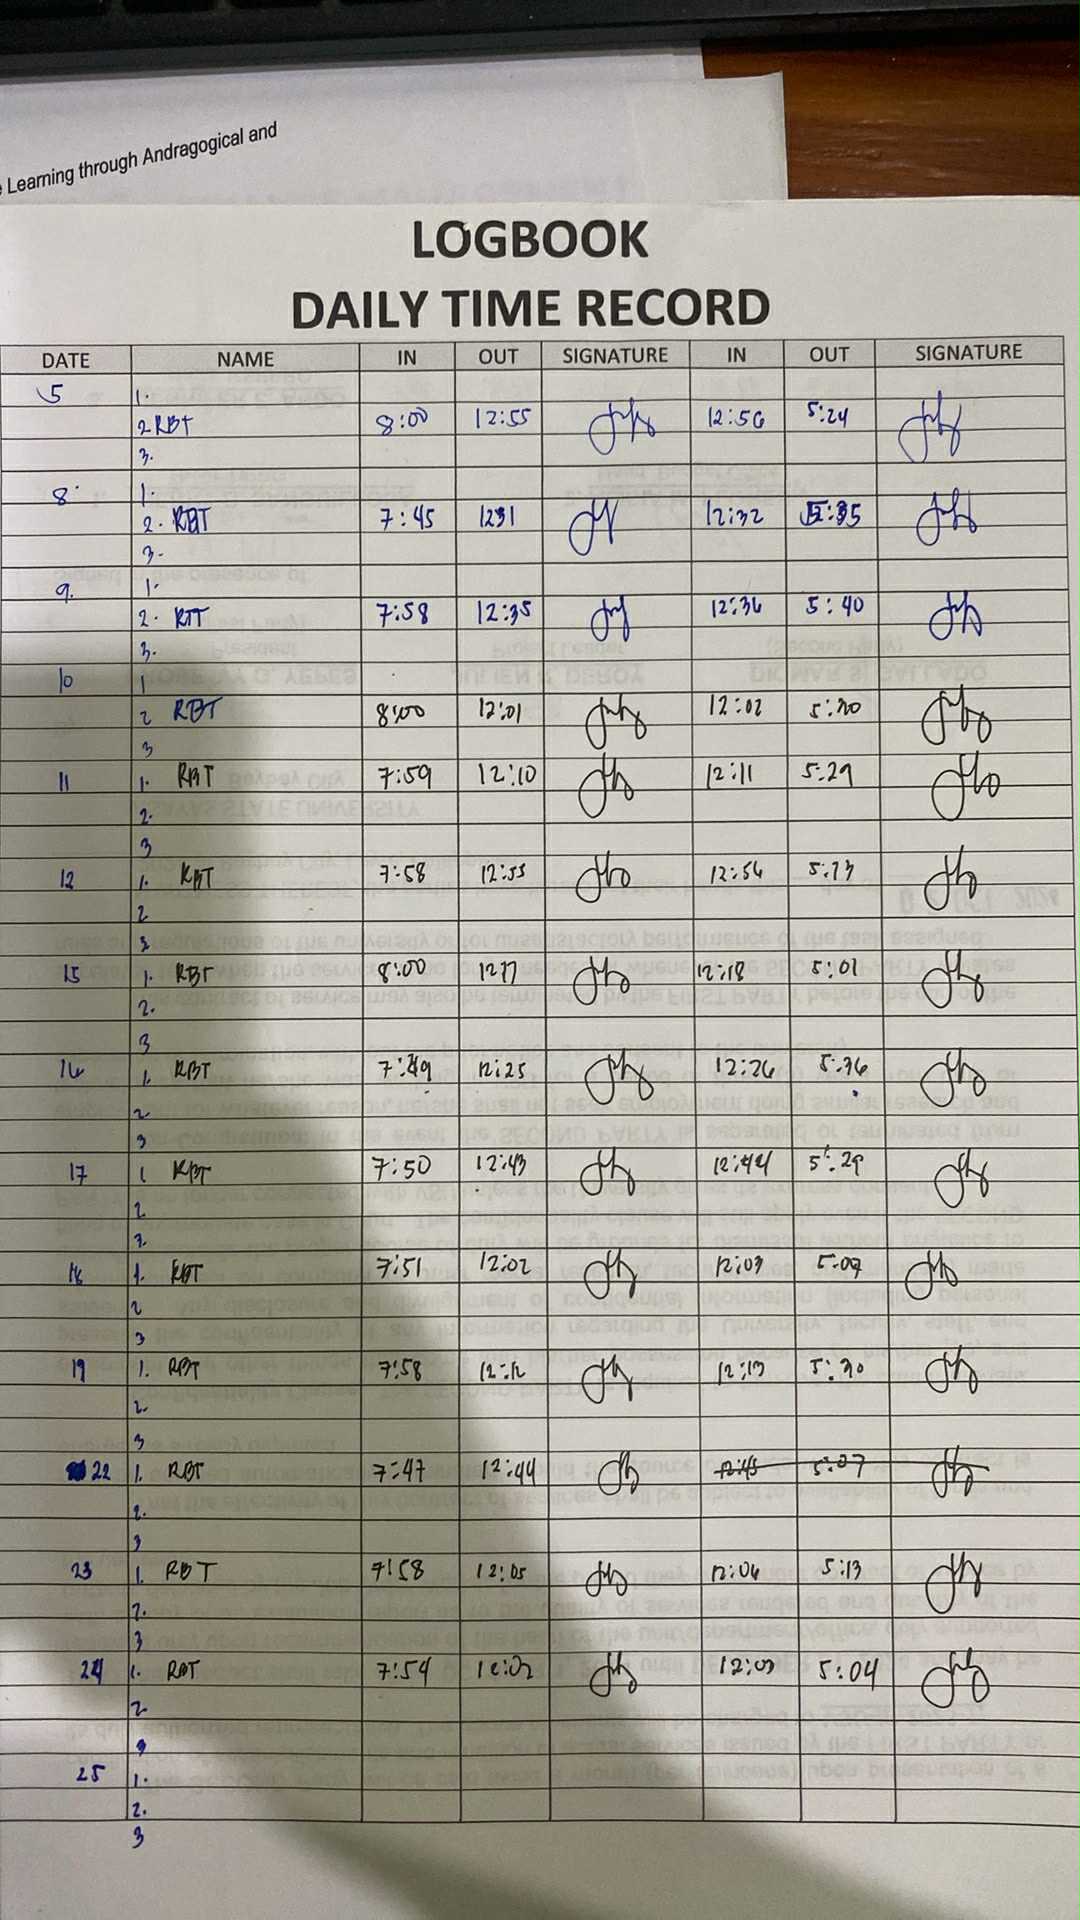 Learning through Andragogical and
LOGBOOK
DAILY TIME RECORD
DATE NAME IN OUT SIGNATURE IN OUT SIGNATURE
5 1.
2. RBT 8:00 12:55 12:56 5:24
3.
8 1.
2. RBT 7:45 1231 12:32 5:35
3.
9. 1.
2. 7:58 12:35 12:36 5:40
3.
10 1
2 RBT 8:00 12:01 12:02
3
11 1. RBT 7:59 12:10 12:11 5:29
2.
3
12 1. RBT 7:58 12:55 12:56
2
3
15 1. RBT 8:00 12:18 5:01
2.
3
16 1. RBT 7:49 12:25 12:26 5:36
2
3
17 1 RBT 7:50 12:43 12:44 5:29
2
3
18 1. RBT 7:51 12:02 12:03
2
3
19 1. RBT 7:58 12:12 12:13 5:30
2.
3
22 1. RBT 7:47 12:44 12:45 5:07
2.
3
23 1. RBT 7:58 12:05 12:06 5:13
2.
3
24 1. RBT 7:54 12:03 5:04
2
3
25 1.
2.
3